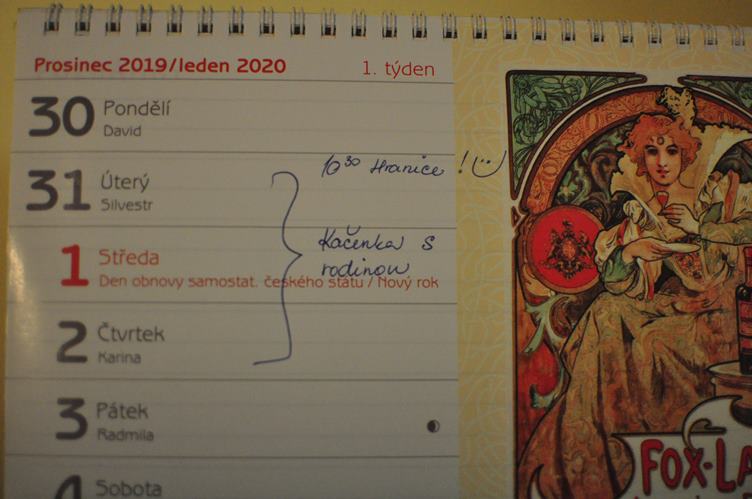 Prosinec 2019/leden 2020 1. týden
30 Pondělí
David
31 Úterý
Silvestr
10 30 Hranice !
1 Středa
Den obnovy samostat. českého státu / Nový rok
Kačenka s
rodinou
2 Čtvrtek
Karina
3 Pátek
Radmila
4 Sobota
FOX-LA